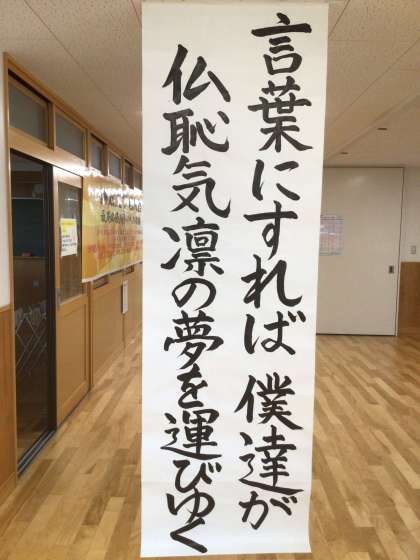 言葉にすれば 僕達が
仏恥気凛の夢を運びゆく